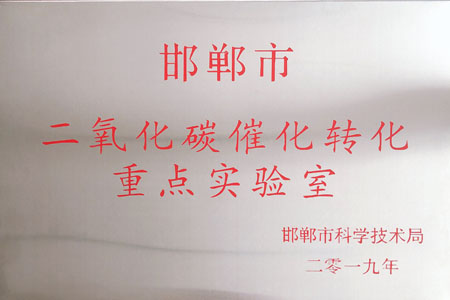 邯郸市
二氧化碳催化转化
重点实验室
邯郸市科学技术局
二零一九年